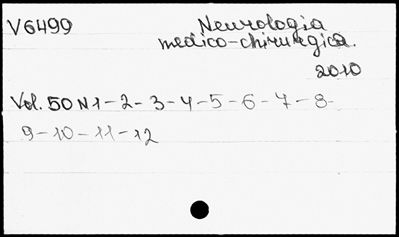 V6499 Neurologia
medico-chirurgica.
2010
Vol. 50 N1-2-3-4-5-6-7-8-
9-10-11-12